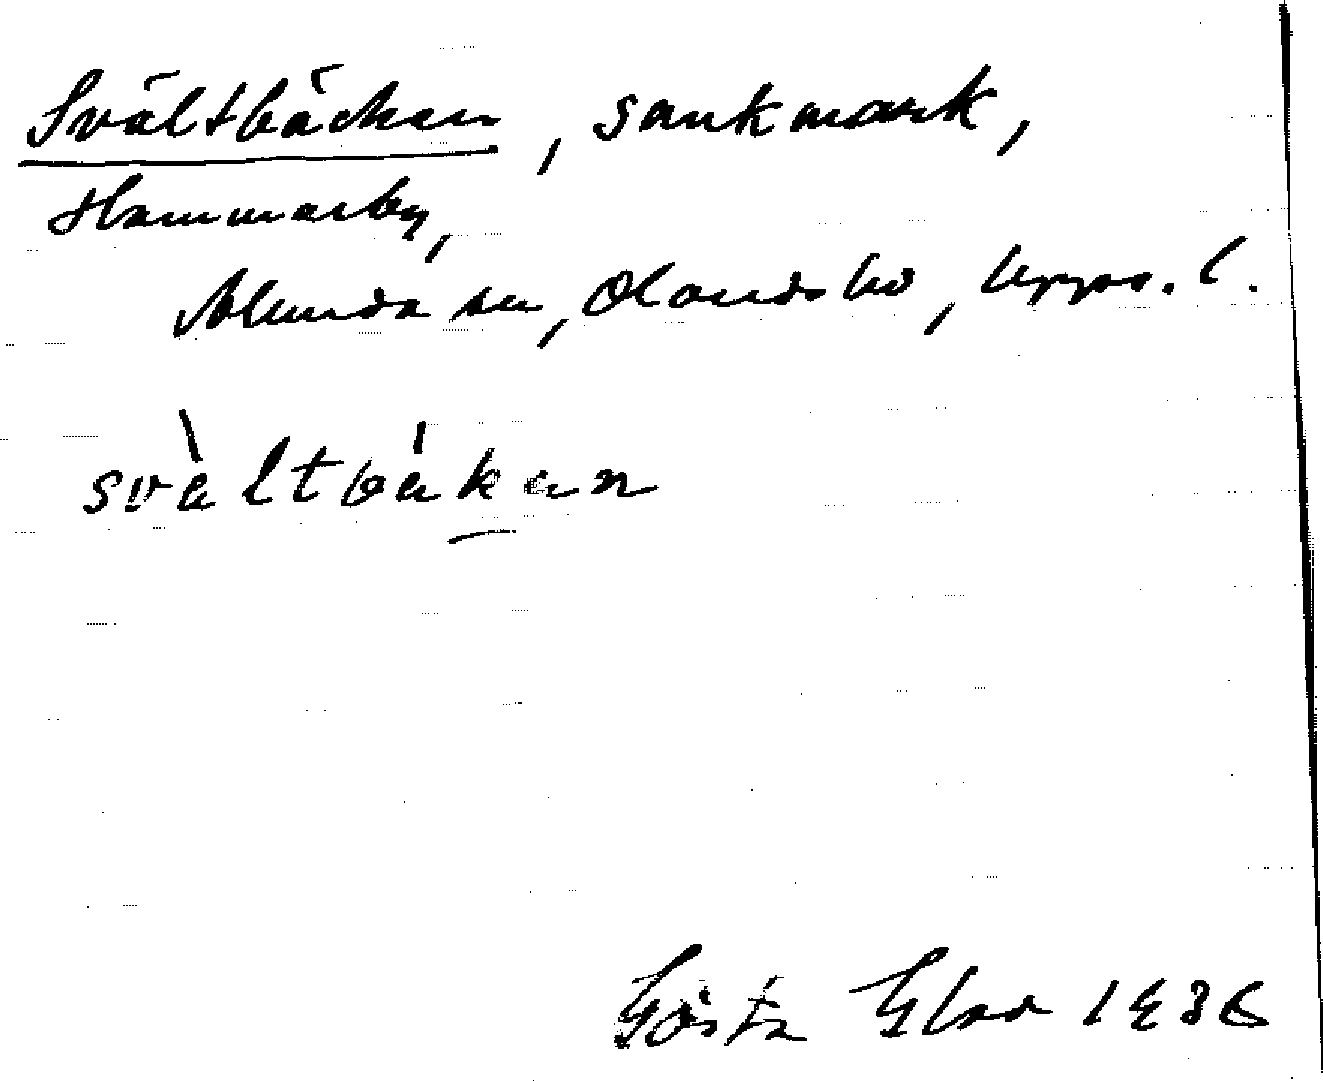 Svältbäcken, sankmark,
Hammarby,
Alunda sn, Olands hd, Upps. l.
svàltbákan
Gösta Elav 1936